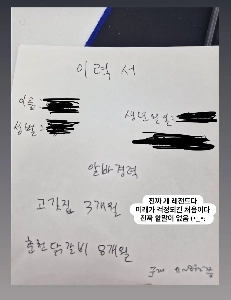 이력서
이름:
생년월일:
성별:
알바경력
진짜 개 레전드다
미래가 걱정되긴 처음이다
진짜 할말이 없음
고깃집 3개월
춘천닭갈비 8개월